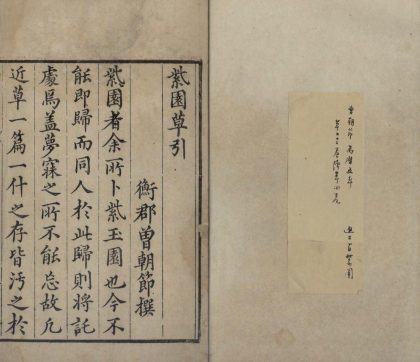 紫園草引
衡郡曾朝節撰
紫園者余所卜紫玉園也今不
能即歸而同人於此歸則將託
處焉蓋夢寐之所不能忘故凡
近草一篇一什之存皆汚之於
曾朝節